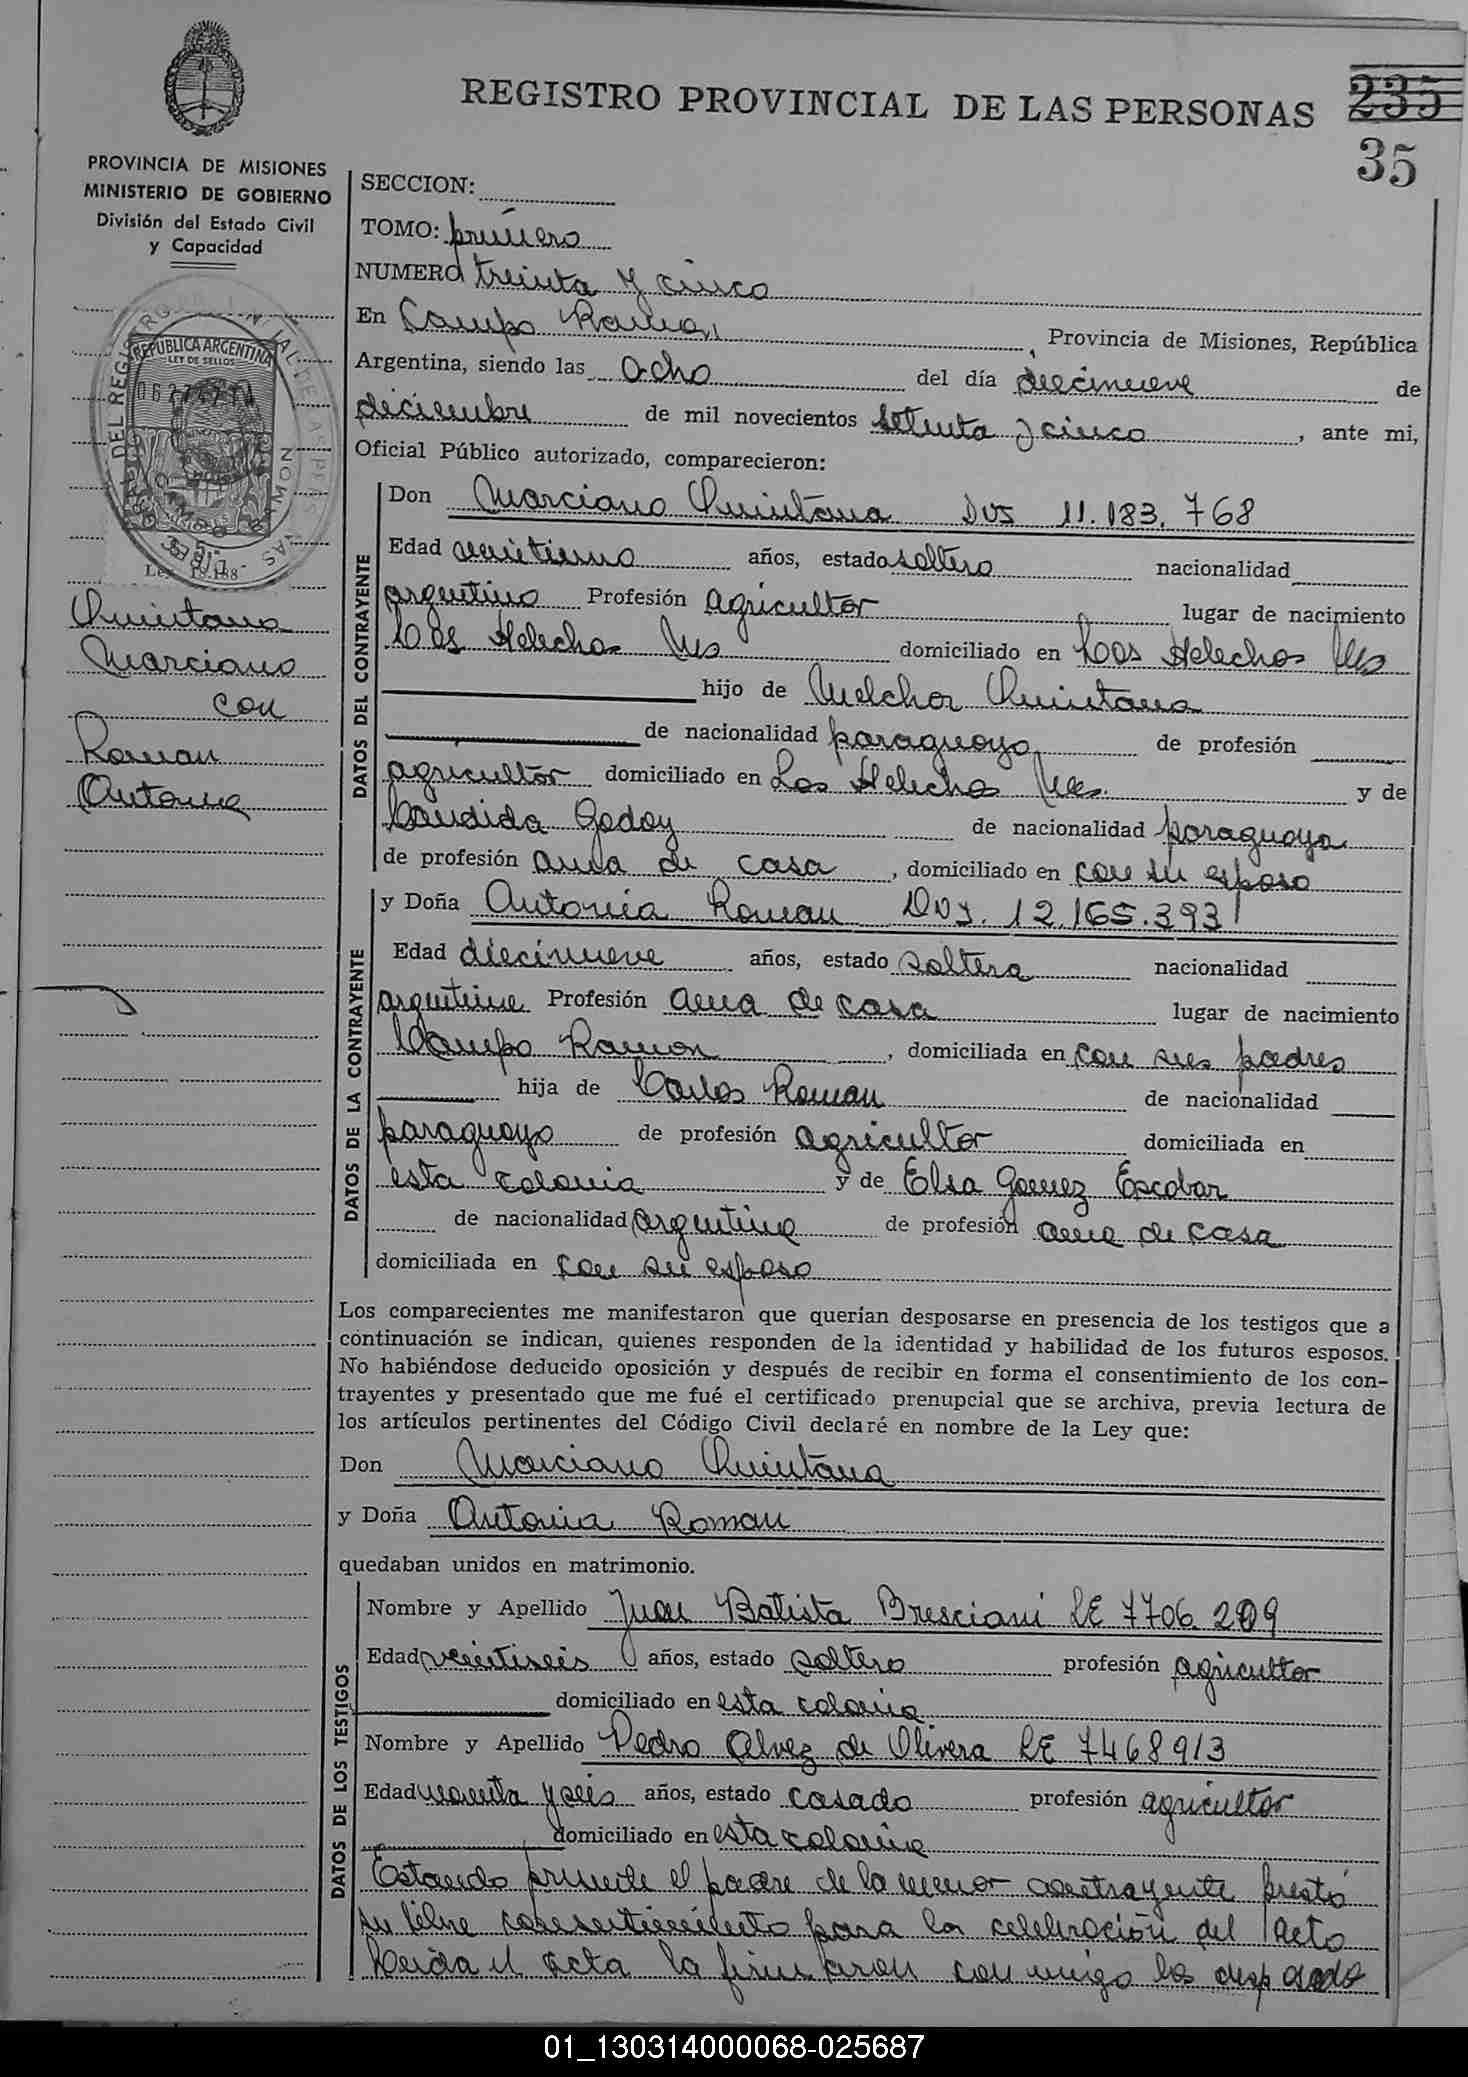 REGISTRO PROVINCIAL DE LAS PERSONAS
235
35
PROVINCIA DE MISIONES
MINISTERIO DE GOBIERNO
División del Estado Civil
y Capacidad
REPUBLICA ARGENTINA
LEY DE SELLOS
Quintana
Marciano
con
Roman
Antonia
SECCION:
TOMO: primero
NUMERO treinta y cinco
En Campo Ramon, Provincia de Misiones, República
Argentina, siendo las ocho del día diecinueve de
diciembre de mil novecientos setenta y cinco, ante mi,
Oficial Público autorizado, comparecieron:
DATOS DEL CONTRAYENTE
Don Marciano Quintana DNI 11.183.768
Edad veintiuno años, estado soltero nacionalidad
argentino Profesión agricultor lugar de nacimiento
Los Helechos Mes domiciliado en Los Helechos Mes
hijo de Melchor Quintana
de nacionalidad paraguayo de profesión
agricultor domiciliado en Los Helechos Mes. y de
Candida Godoy de nacionalidad paraguaya
de profesión ama de casa, domiciliado en con su esposo
DATOS DE LA CONTRAYENTE
y Doña Antonia Roman DNI. 12.165.393
Edad diecinueve años, estado soltera nacionalidad
argentina Profesión ama de casa lugar de nacimiento
Campo Ramon, domiciliada en con sus padres
hija de Carlos Roman de nacionalidad
paraguayo de profesión agricultor domiciliada en
esta colonia y de Elsa Gomez Escobar
de nacionalidad argentina de profesión ama de casa
domiciliada en con su esposo
Los comparecientes me manifestaron que querían desposarse en presencia de los testigos que a
continuación se indican, quienes responden de la identidad y habilidad de los futuros esposos.
No habiéndose deducido oposición y después de recibir en forma el consentimiento de los con-
trayentes y presentado que me fué el certificado prenupcial que se archiva, previa lectura de
los artículos pertinentes del Código Civil declaré en nombre de la Ley que:
Don Marciano Quintana
y Doña Antonia Roman
quedaban unidos en matrimonio.
DATOS DE LOS TESTIGOS
Nombre y Apellido Juan Batista Bresciani LE 7706.209
Edad veintiseis años, estado soltero profesión agricultor
domiciliado en esta colonia
Nombre y Apellido Pedro Alvez de Olivera LE 7468913
Edad cuarenta y seis años, estado casado profesión agricultor
domiciliado en esta colonia
Estando presente el padre de la menor contrayente prestó
su libre consentimiento para la celebración del acto
Leida el acta la firmaron conmigo los desposado
01_130314000068-025687